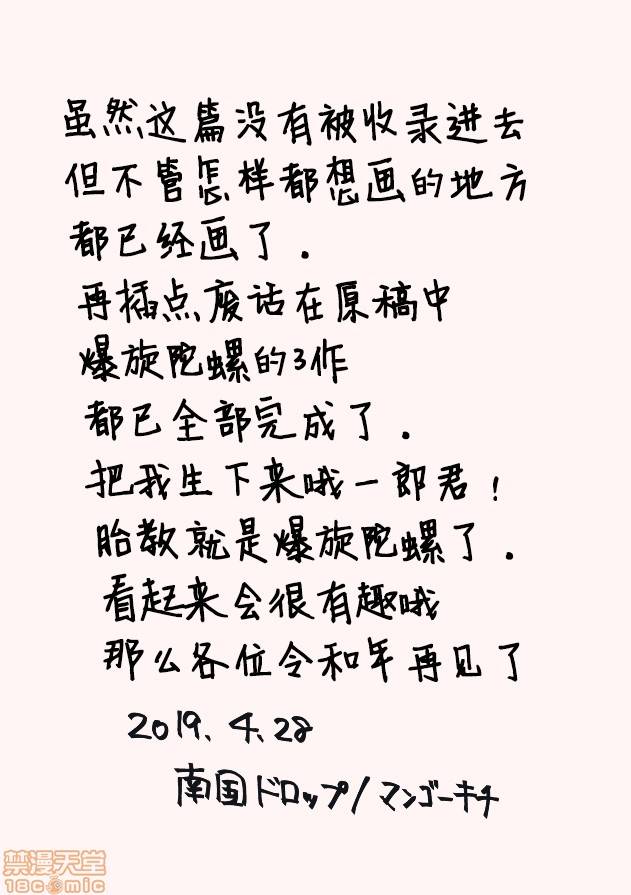 虽然这篇没有被收录进去
但不管怎样都想画的地方
都已经画了.
再插点废话在原稿中
爆旋陀螺的3作
都已全部完成了.
把我生下来哦一郎君!
胎教就是爆旋陀螺了.
看起来会很有趣哦
那么各位令和年再见了
2019.4.28
南国ドロップ/マンゴーキチ
禁漫天堂
18comic